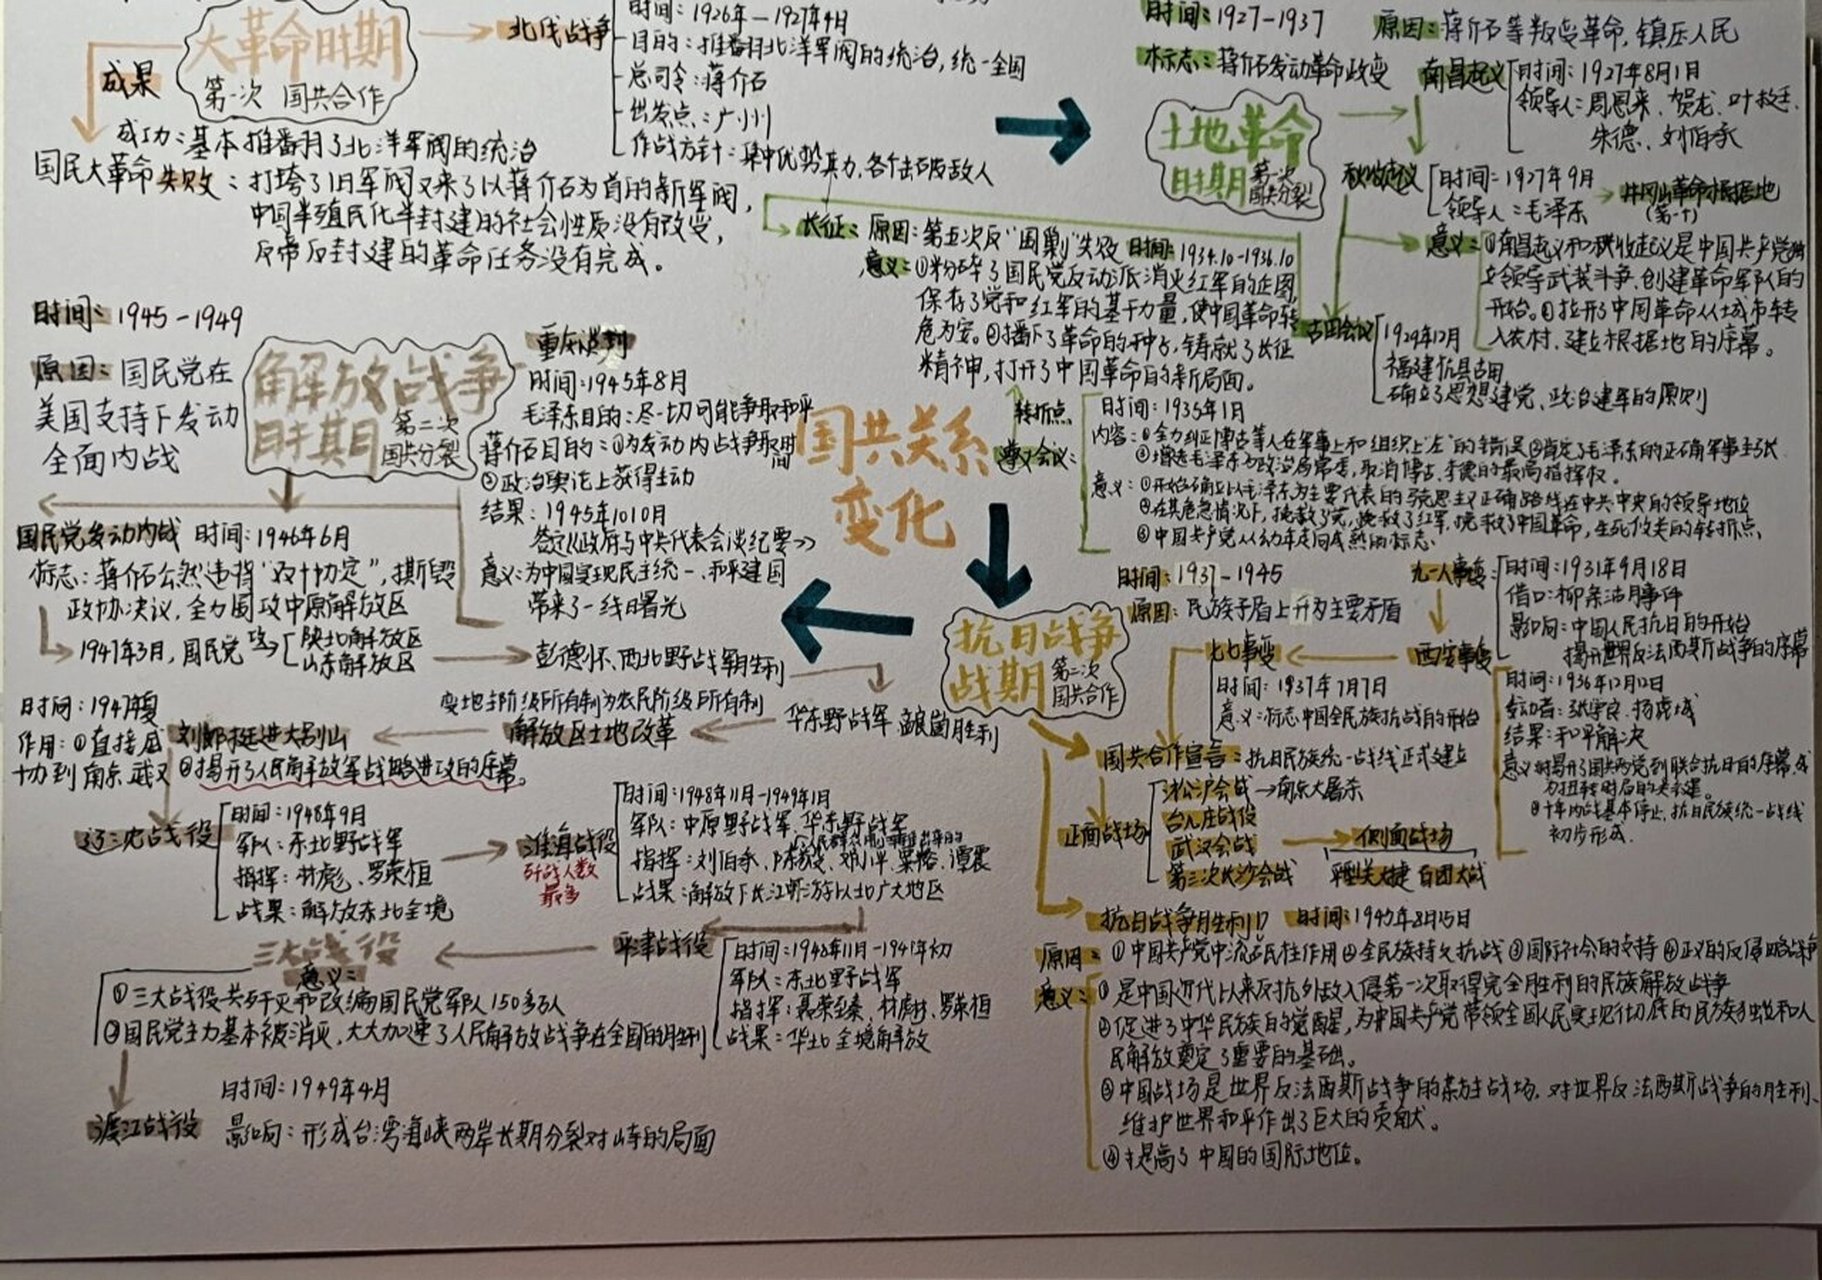 大革命时期
第一次 国共合作
成果
成功:基本推翻了北洋军阀的统治
国民大革命失败:打垮了旧军阀又来了以蒋介石为首的新军阀,
中国半殖民化半封建的社会性质没有改变,
反帝反封建的革命任务没有完成。
北伐战争
时间:1926年—1927年4月
目的:推翻北洋军阀的统治,统一全国
总司令:蒋介石
出发点:广州
作战方针:集中优势兵力,各个击破敌人
时间:1927-1937
原因:蒋介石等叛变革命,镇压人民
标志:蒋介石发动革命政变
土地革命
时期 第一次
国共分裂
南昌起义
时间:1927年8月1日
领导人:周恩来、贺龙、叶挺、
朱德、刘伯承
秋收起义
时间:1927年9月
领导人:毛泽东
井冈山革命根据地
(第一个)
意义:①南昌起义和秋收起义是中国共产党独
立领导武装斗争、创建革命军队的
开始。②拉开了中国革命从城市转
入农村、建立根据地的序幕。
古田会议
1929年12月
福建 古田
确立了思想建党、政治建军的原则
长征:原因:第五次反“围剿”失败 时间:1934.10-1936.10
意义:①粉碎了国民党反动派消灭红军的企图,
保存了党和红军的基干力量,使中国革命转
危为安。②播下了革命的种子,铸就了长征
精神,打开了中国革命的新局面。
转折点
遵义会议:
时间:1935年1月
内容:①全力纠正博古等人在军事上和组织上“左”的错误②肯定了毛泽东的正确军事主张
③增选毛泽东为政治局常委,取消博古、李德的最高指挥权。
意义:①开始确立以毛泽东为主要代表的马克思主义正确路线在中共中央的领导地位
②在其危急情况下,挽救了党,挽救了红军,挽救了中国革命,生死攸关的转折点、
③中国共产党从幼年走向成熟的标志、
国共关系
变化
时间:1945-1949
原因:国民党在
美国支持下发动
全面内战
解放战争
时期 第二次
国共分裂
重庆谈判
时间:1945年8月
毛泽东目的:尽一切可能争取和平
蒋介石目的:①为发动内战争取时间
②政治舆论上获得主动
结果:1945年10月10日
签定《政府与中共代表会谈纪要》
意义:为中国实现民主统一、和平建国
带来了一线曙光
国民党发动内战 时间:1946年6月
标志:蒋介石公然违背“双十协定”,撕毁
政协决议,全力围攻中原解放区
1947年3月,国民党 攻→ 陕北解放区
山东解放区
彭德怀、西北野战军胜利
华东野战军 孟良崮胜利
变地主阶级所有制为农民阶级所有制
解放区土地改革
时间:1947年夏
刘邓挺进大别山
作用:①直接威
胁到南京、武汉 ②揭开了人民解放军战略进攻的序幕。
辽沈战役
时间:1948年9月
军队:东北野战军
指挥:林彪、罗荣桓
战果:解放东北全境
淮海战役
歼战人数
最多
时间:1948年11月-1949年1月
军队:中原野战军、华东野战军
指挥:刘伯承、陈毅、邓小平、粟裕、谭震
战果:解放了长江 游以北广大地区
平津战役
时间:1948年11月-1949年初
军队:东北野战军
指挥:聂荣臻、林彪、罗荣桓
战果:华北全境解放
三大战役
意义:
①三大战役共歼灭和改编国民党军队150多万人
②国民党主力基本被消灭,大大加速了人民解放战争在全国的胜利
渡江战役
时间:1949年4月
影响:形成台湾海峡两岸长期分裂对峙的局面
抗日战争
战期 第二次
国共合作
时间:1937-1945
原因:民族矛盾上升为主要矛盾
九一八事变:
时间:1931年9月18日
借口:柳条湖事件
影响:中国人民抗日的开始
揭开世界反法西斯战争的序幕
西安事变
时间:1936年12月12日
发动者:张学良、杨虎城
结果:和平解决
意义:①揭开了国共两党 联合抗日的序幕,成
为扭转时局的关键。
②十年内战基本停止,抗日民族统一战线
初步形成.
七七事变
时间:1937年7月7日
意义:标志中国全民族抗战的开始
国共合作宣言:抗日民族统一战线正式建立
正面战场
淞沪会战→南京大屠杀
台儿庄战役
武汉会战
第三次长沙会战
侧面战场
平型关大捷 百团大战
抗日战争胜利 时间:1945年8月15日
原因:①中国共产党中流砥柱作用②全民族持久抗战③国际社会的支持④正义的反侵略战争
意义:①是中国近代以来反抗外敌入侵第一次取得完全胜利的民族解放战争
②促进了中华民族的觉醒,为中国共产党带领全国人民实现彻底的民族独立和人
民解放奠定了重要的基础。
③中国战场是世界反法西斯战争的东方主战场,对世界反法西斯战争的胜利、
维护世界和平作出了巨大的贡献。
④提高了中国的国际地位。